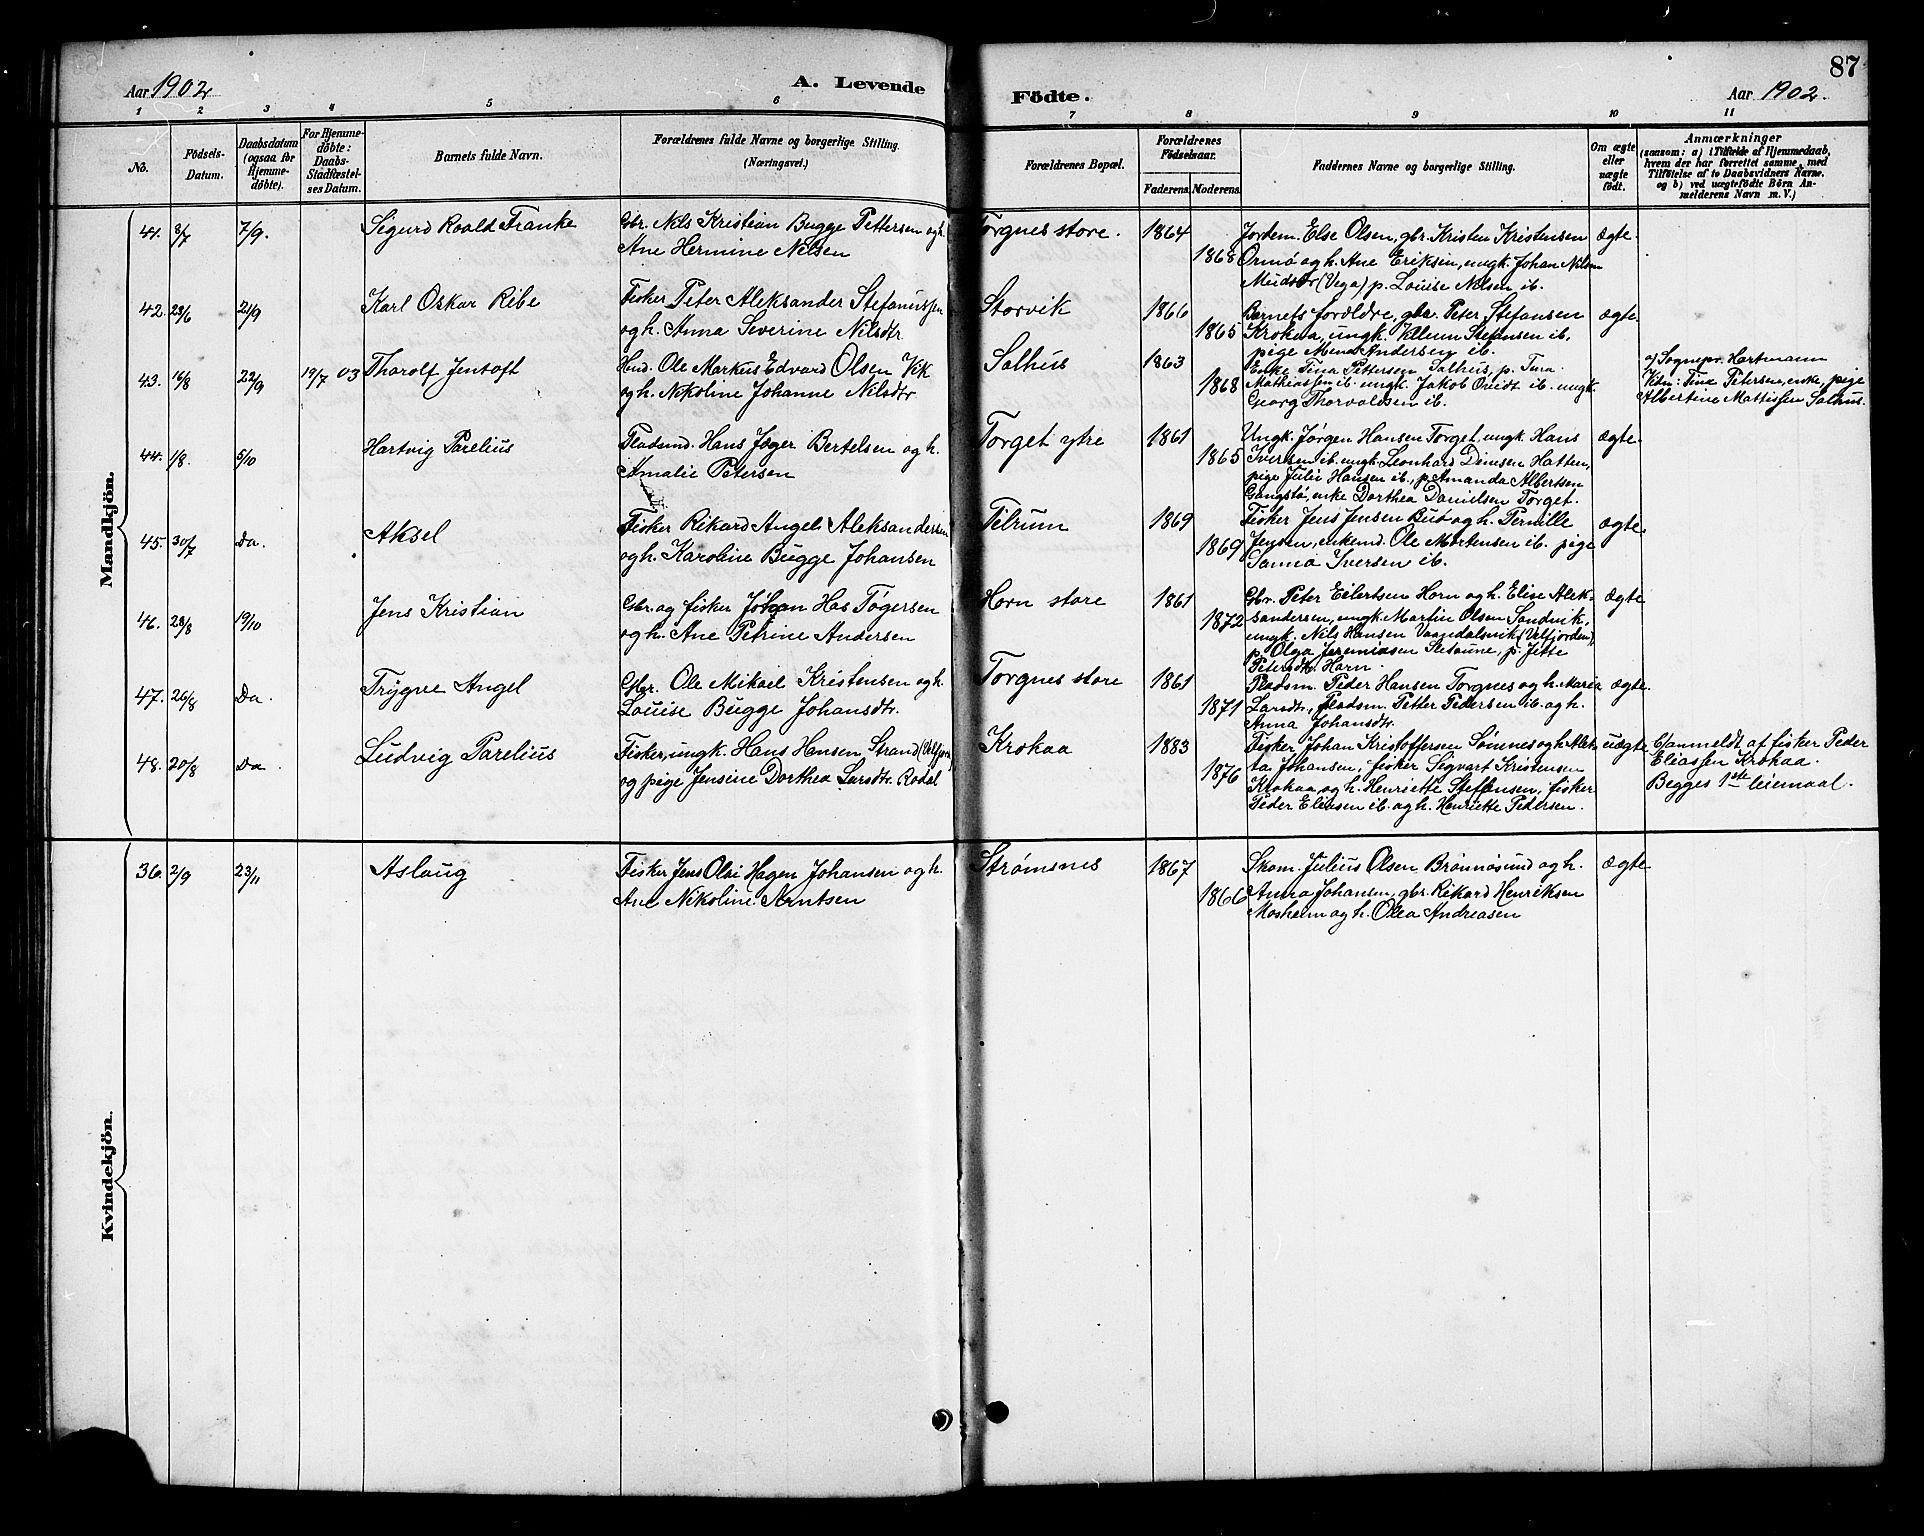 87
Aar 1902
A. Levende
Födte.
Aar 1902.
1 2 3 4 5 6 7 8 9 10 11
No.
Födsels-
Datum.
Daabsdatum
(ogsaa for
Hjemme-
döbte).
For Hjemme-
döbte:
Daabs-
Stadfæstel-
ses Datum.
Barnets fulde Navn.
Forældrenes fulde Navne og borgerlige Stilling.
(Næringsvei.)
Forældrenes Bopæl.
Forældrenes
Födselsaar.
Faderens.
Moderens.
Faddernes Navne og borgerlige Stilling.
Om ægte
eller
uægte
födt.
Anmærkninger
(saasom: a) i Tilfælde af Hjemmedaab,
hvem der har forrettet samme, med
Tilföielse af to Daabsvidners Navne.
og b) ved uægtefödte Börn An-
melderens Navn m. V.)
Mandkjön.
41. 3/7 7/9. Sigurd Roald Franke
Gbr. Nils Kristian Bugge Pettersen og h.
Ane Hermine Nilsen
Torgnes store. 1864 1868
Jordem. Else Olsen, gbr. Kristen Kristensen
Ormö og h. Ane Eriksen, ungk. Johan Nilsen
(Vega) p. Louise Nilsen ib.
ægte.
42. 23/6 21/9 Karl Oskar Ribe
Fisker Peter Aleksander Stefanussen
og h. Anna Severine Nilsdtr.
Storvik 1866 1865
Barnets forældre, gbr. Peter Stefansen
Krokaa, ungk. Villum Stefansen ib,
pige Mena Andersen ib.
ægte.
43. 16/8 22/9 19/7 03 Tharolf Jentoft
Hmd. Ole Markus Edvard Olsen Vik
og h. Nikoline Johanne Nilsdtr.
Salhus 1863 1868
Enke Tina Pettersen Salhus, p. Tina
Mathiassen ib. ungk. Jakob Qvidt ib. ungk.
Georg Thorvaldsen ib.
a/ Sognepr. Hartmann
Vidn: Tine Petersen, enke, pige
Albertine Mattissen Salhus.
44. 1/8. 5/10 Hartvig Parelius
Pladsmd. Hans Jæger Bertelsen og h.
Amalie Petersen
Torget ytre 1861 1865
Ungk. Jørgen Hansen Torget, ungk. Hans
Iversen ib. ungk. Leonhard Dinesen Hatten,
pige Julie Hansen ib., p. Amanda Albertsen
Gangstö, enke Dorthea Danielsen Torget.
ægte.
45. 30/7 Do. Aksel
Fisker Rikard Angel Aleksandersen
og h. Karoline Bugge Johansen
Tilrum 1869 1869
Fisker Jens Jensen Buö og h. Pernille
Jensen, enkemd. Ole Mortensen ib. pige
Samia Iversen ib.
ægte.
46. 28/8 19/10 Jens Kristian
Gbr. og fisker Johan Has Tøgersen
og h. Ane Petrine Andersen
Horn store 1861 1872
Gbr. Peter Eilertsen Horn og h. Elise Alek-
sandersen, ungk. Martin Olsen Sandvik,
ungk. Nils Hansen Vaandalsvik (Velfjorden),
p. Olga Jeremiasen Sletaune, p. Jette
Petersdtr. Horn.
ægte
47. 26/8 Do. Trygve Angel
Gbr. Ole Mikael Kristensen og h.
Louise Bugge Johansdtr.
Torgnes store 1861 1871
Pladsm. Peder Hansen Torgnes og h. Maria
Larsdtr., pladsm. Petter Pedersen ib. og h.
Anna Johansdtr.
ægte.
48. 20/8 Do. Ludvig Parelius
Fisker, ungk. Hans Hansen Strand (Velfjord)
og pige Jensine Dorthea Larsdtr. Rodal
Krokaa 1883 1876
Fisker Johan Kristoffersen Sømnes og h. Alek-
ta Johansen, fisker Sigvart Kristensen
Krokaa, og h. Henriette Steffensen, fisker
Peder Eliasen ib. og h. Henriette Pedersen.
uægte
b/ anmeldt af fisker Peder
Eliassen Krokaa.
Begges 1ste leiemaal.
Kvindekjön.
36. 2/9 23/11 Aslaug
Fisker Jens Olai Hagen Johansen og h.
Ane Nikoline Arntsen
Strømsnes 1867 1866
Skom. Julius Olsen Brønnøsund og h.
Anna Johansen, gbr. Rikard Henriksen
Mosheim og h. Olea Andreasen
ægte